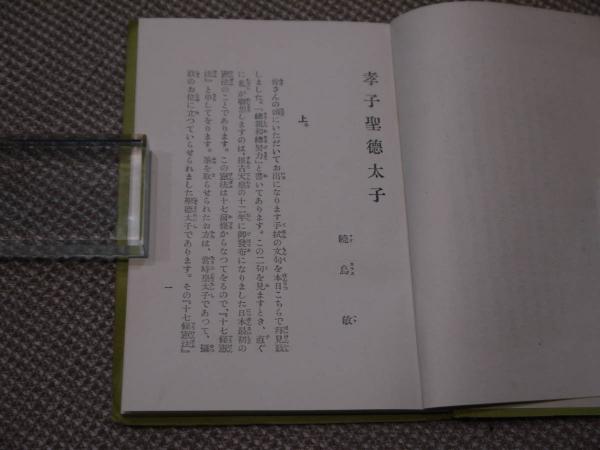 孝子聖德太子
曉烏敏
上。
皆さんの頭にいただいてお出になります手拭の文句を本日こちらで拜見致
しました。「總親和總努力」と書いてあります。この二句を見ますとき、直ぐ
に私が聯想しますのは、推古天皇の十二年に御發布になりました日本最初の
憲法のことであります。この憲法は十七箇條からなつてをるので、『十七條憲
法』と申してをります。筆を取らせられたお方は、當時皇太子であつて、攝
政のお位に立つていらせられました聖德太子であります。その『十七條憲法』
一